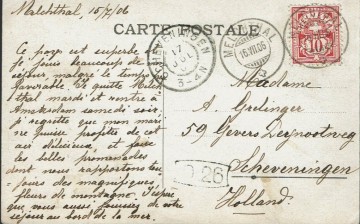 Melchthal, 15/7/06
CARTE POSTALE
Ce pays est superbe et je
jouis beaucoup de
séjour, malgré le temps
favorable. Je quitte Melch-
thal mardi et rentre à
Amsterdam samedi soir,
je regrette que mon mari
ne puisse profite de cet
air délicieux, et faire
les belles promenades
dont nous rapportons tou-
jours des magnifiques
fleurs de montagne. J'espère
que vous aussi jouissez de votre
séjour au bord de la mer.
17
JUL
MELCHTHAL
16.VII.06
HELVETIA
10
Madame
A. Grelinger
59 Gevers Deynootweg
Scheveningen
Holland.
26